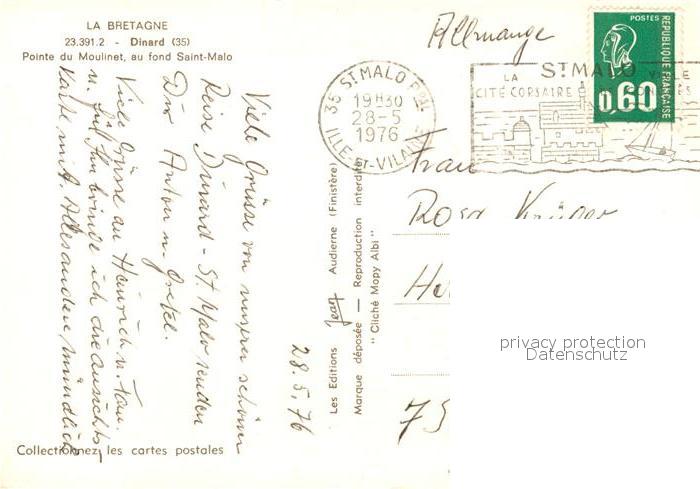 LA BRETAGNE
23.391.2 - Dinard (35)
Pointe du Moulinet, au fond Saint-Malo
Viele Grüsse von unserer schönen
Reise Dinard - St. Malo senden
Dir Anton u. Gretel.
Viele Grüsse an Heinrich u. Fam.
u. für ihn bringe ich die Ansichts-
karte mit. Alles andere mündlich
28.5.76
Collectionnez les cartes postales
Les Editions Jean Audierne (Finistère)
Marque déposée — Reproduction interdite
"Cliché Mopy Albi"
Allmange
35 ST MALO PPAL
19H30
28-5
1976
ILLE-ET-VILAINE
LA
CITÉ CORSAIRE
ST MALO
POSTES
RÉPUBLIQUE FRANÇAISE
0,60
Frau
Rosa Krüger
75
privacy protection
Datenschutz